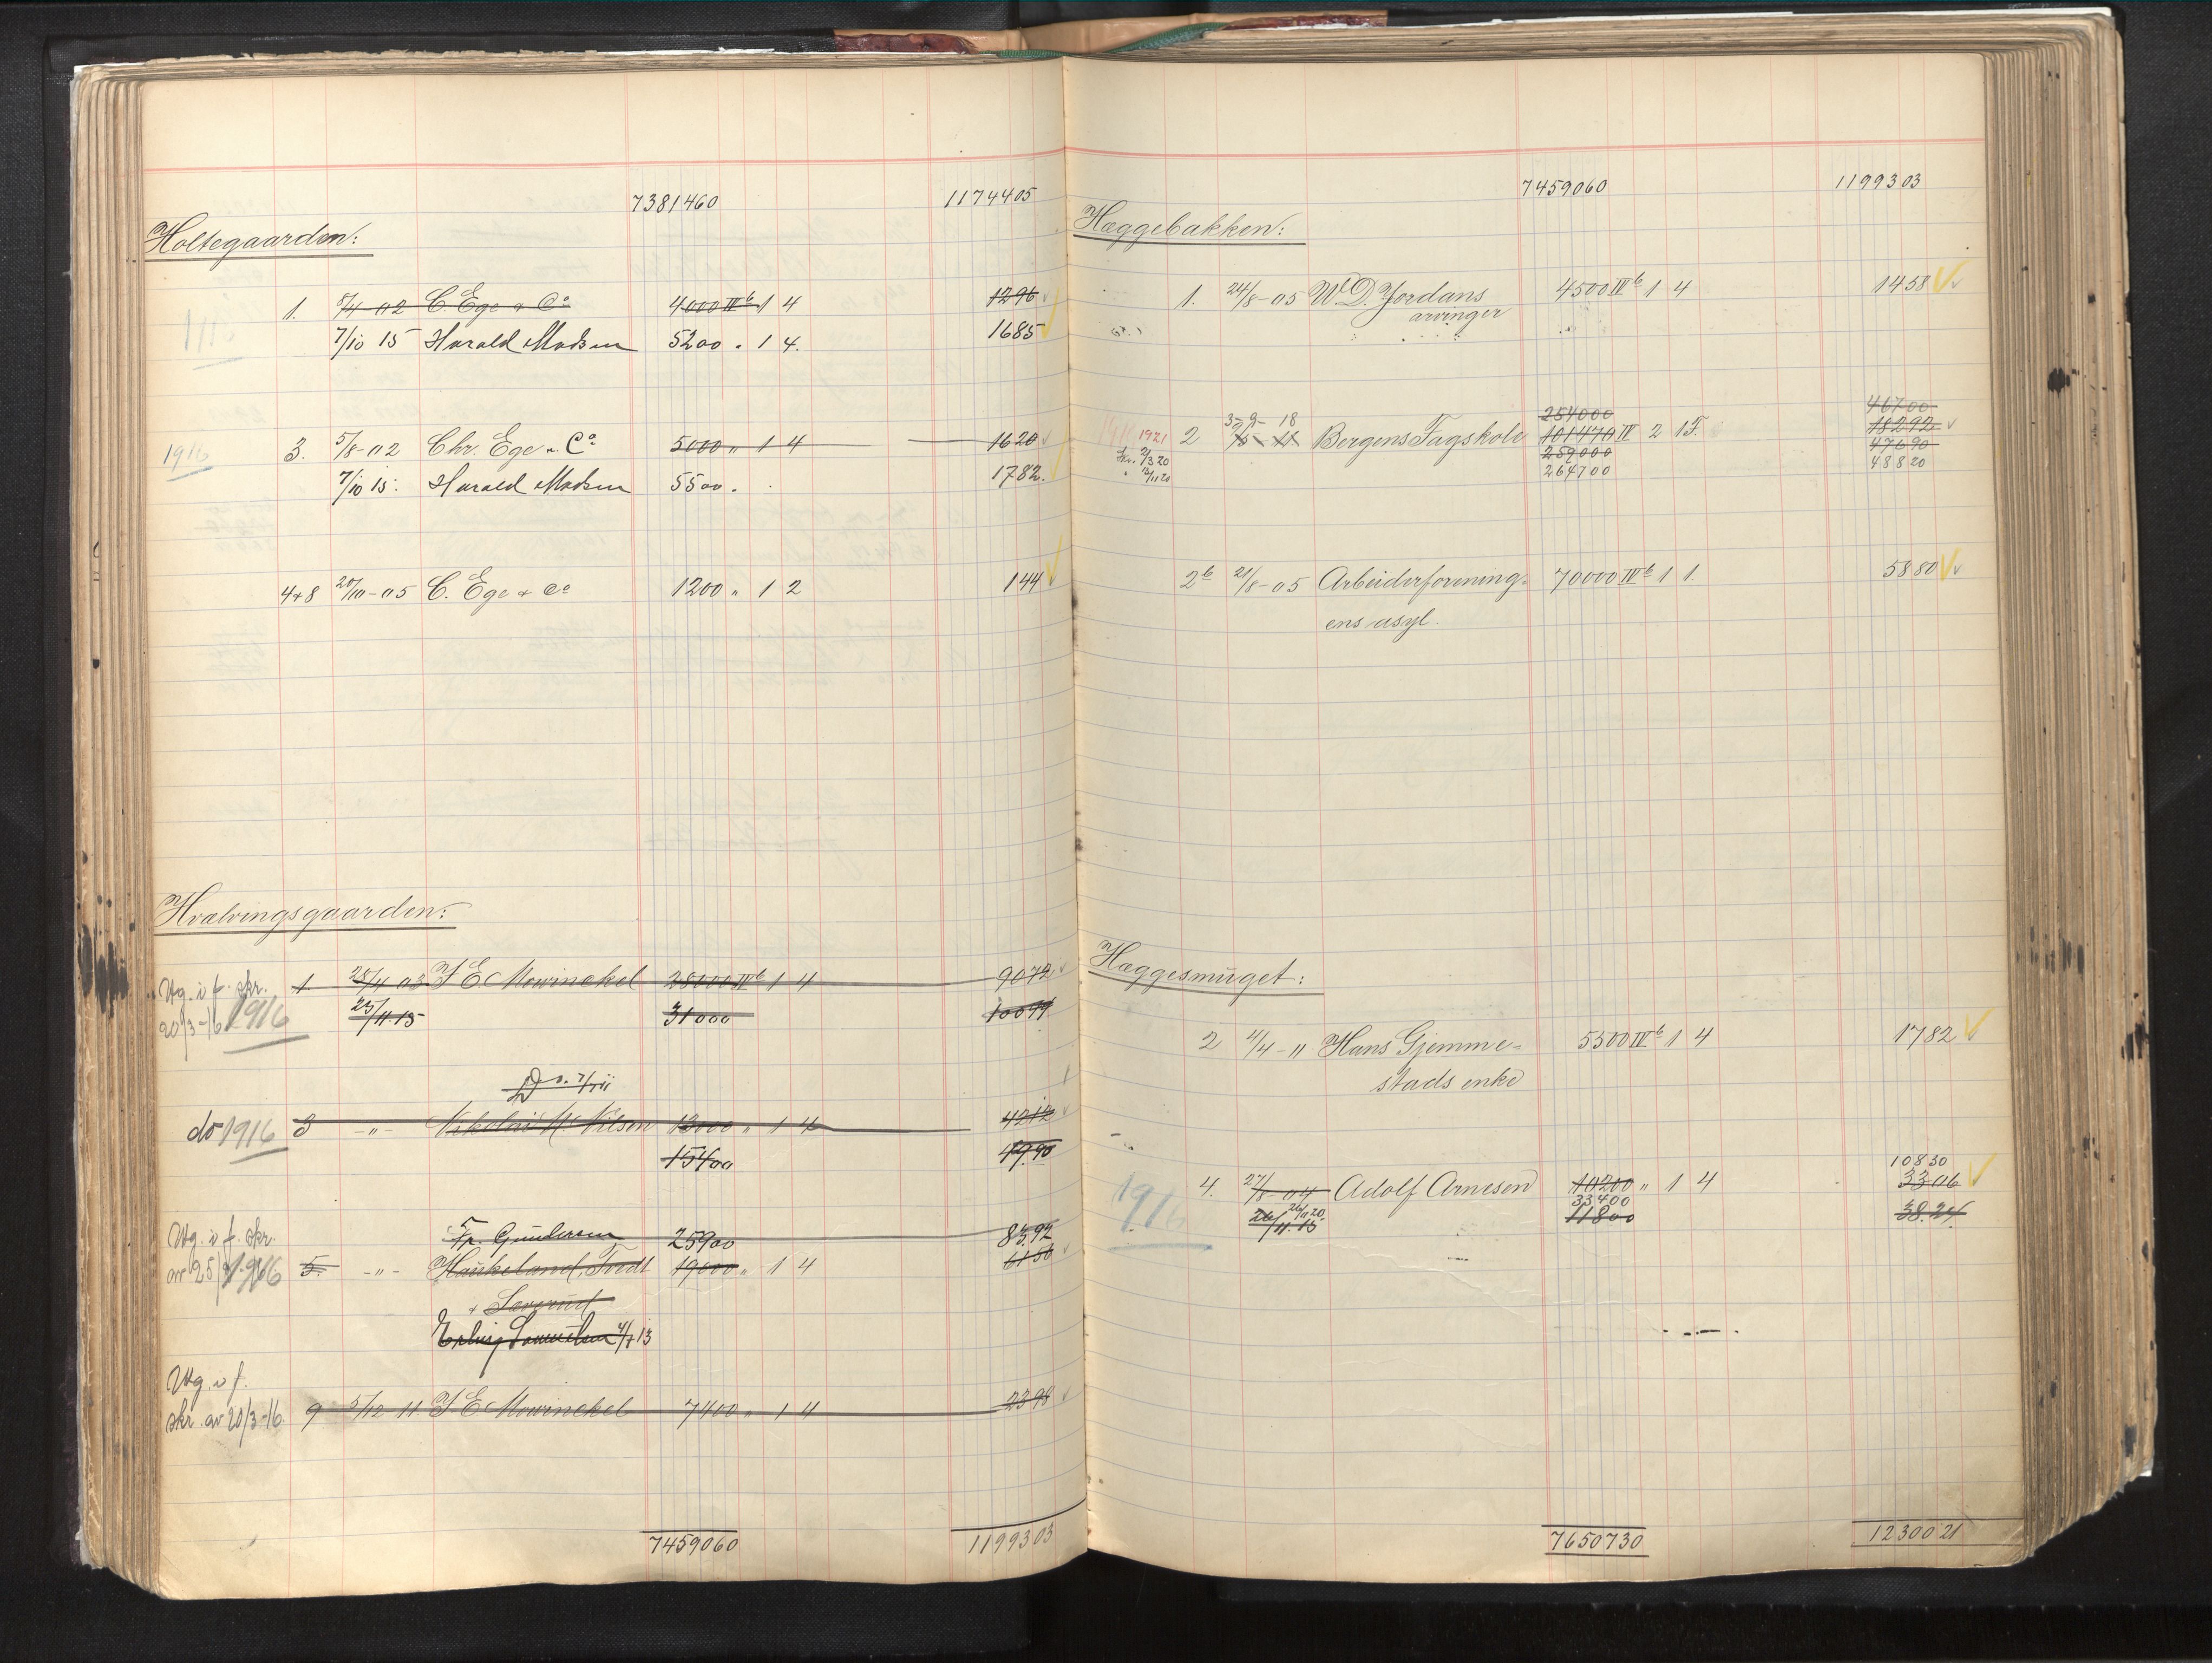 7381460 1174405
Holtegaarden:
1. 8/4 02 C. Ege & Co 4000 IVb 1 4 1296
7/10 15 Harald Madsen 5200 " 1 4. 1685
1916 3. 5/8-02 Chr. Ege & Co 5000 " 1 4 1620
7/10 15. Harald Madsen 5500 " 1782.
4+8 20/10-05 C. Ege & Co 1200 " 1 2 144
Hvalvingsgaarden:
Utg. i f. skr. 1 28/4 03 J E. Mowinckel 28000 IVb 1 4 9072
20/3-16 1916 23/11.15 31000 10044
D
do 1916 3 -"- Nikolai M. Nilsen 13000 " 1 4 4212
15400 4990
Utg. i f. skr. Fr. Gundersen 25900 8392
av 25/ 1916 5. -"- Haukeland, Tvedt 19000 " 1 4 6156
&
Erling 4/7 13
Utg. i f.
skr. av 20/3-16. 9 5/12 11 J E Mowinckel 7400 " 1 4 2398
7459060 1199303
7459060 1199303
Hæggebakken:
1. 24/8-05 W. D. Jordans 4500 IVb 1 4 1458
arvinger
3-9-18 254000 46700
1921 2 Bergens Fagskole 101470 IV 2 1 F. 18292
Skr. 2/3 20 259000 47690
" 2/11 20 264700 48820
2b 21/8-05 Arbeiderforening- 70000 IVb 1 1. 5880
ens asyl.
Hæggesmuget:
2 4/4-" Hans Gjemme- 5500 IVb 1 4 1782
stads enke
10830
4. 27/8-04 Adolf Arnesen 10200 " 1 4 3306
1916 26/11 20. 33400
26/11.15 11800 38.24
7650730 1230021